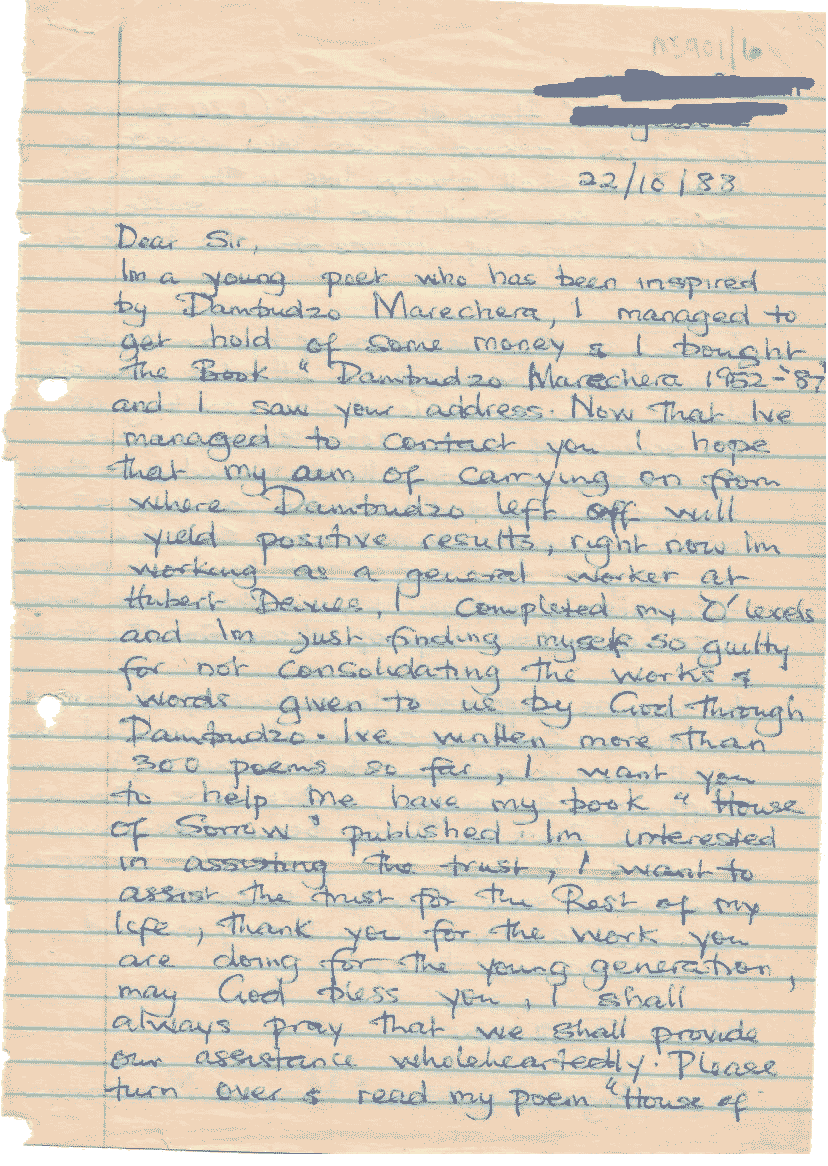 22/10/88
Dear Sir,
Im a young poet who has been inspired
by Dambudzo Marechera, I managed to
get hold of some money & I bought
the Book " Dambudzo Marechera 1952-'87"
and I saw your address. Now that Ive
managed to contact you I hope
that my aim of carrying on from
where Dambudzo left off will
yield positive results, right now Im
working as a general worker at
Hubert Davies, I completed my 'O' levels
and Im just finding myself so guilty
for not consolidating the works &
words given to us by God through
Dambudzo. Ive written more than
300 poems so far, I want you
to help me have my book " House
of Sorrow" published. Im interested
in assisting the trust, I want to
assist the trust for the Rest of my
life, thank you for the work you
are doing for the young generation,
may God bless you, I shall
always pray that we shall provide
our assistance wholeheartedly. Please
turn over & read my poem "House of